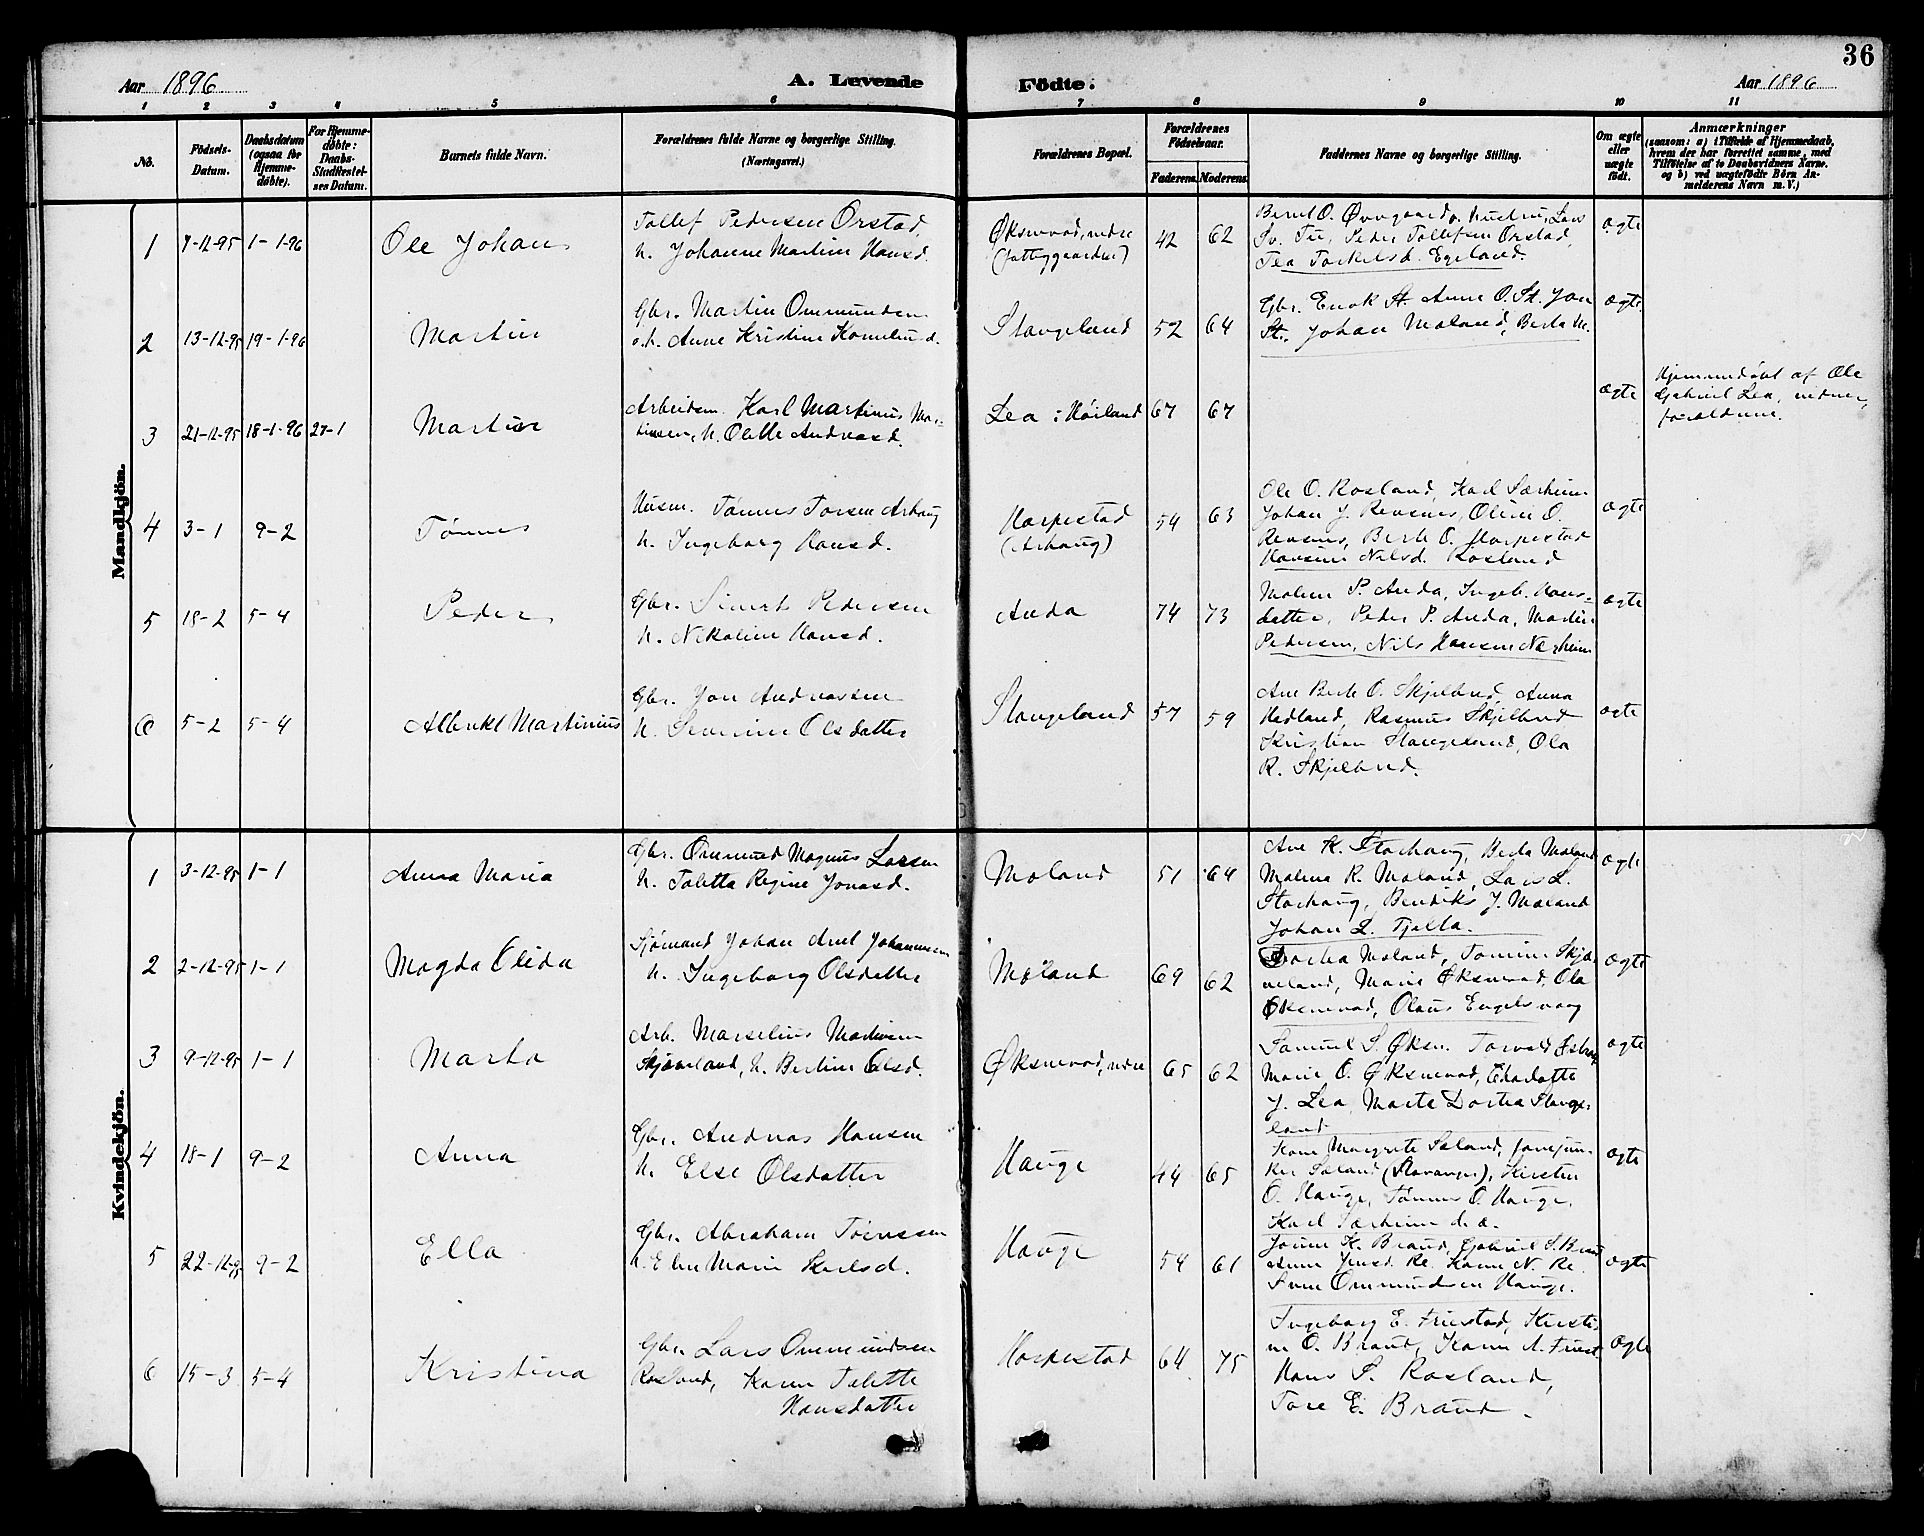 36
Aar 1896
A. Levende Födte.
Aar 1896
1 2 3 4 5 6 7 8 9 10 11
No.
Födsels-Datum.
Daabsdatum (ogsaa for Hjemme-döbte).
For Hjemme-döbte: Daabs-Stadfæstel-ses Datum.
Barnets fulde Navn.
Forældrenes fulde Navne og borgerlige Stilling. (Næringsvei.)
Forældrenes Bopæl.
Forældrenes Födselsaar.
Faderens. Moderens.
Faddernes Navne og borgerlige Stilling.
Om ægte eller uægte födt.
Anmærkninger (saasom: a) i Tilfælde af Hjemmedaab, hvem der har forrettet samme, med Tilföielse af to Daabsvidners Navne. og b) ved uægtefödte Börn Anmelderens Navn m. V.)
Mandkjön.
1 7-12-95 1-1-96 Ole Johan
Tollef Pedersen Orstad,
h. Johanne Martine Hansd.
Øksnevad, nedre
(fattiggaarden)
42 62
Bernt O. Øvregaard o. hustru, Lars
Sv. Tu, Peder Tollefsen Orstad,
Tea Torkelsd. Egeland.
ægte
2 13-12-95 19-1-96 Martin
Gbr. Martin Ommundsen
o.h. Anne Kristine Kornelиusd.
Stangeland 52 64
Gbr. Enok St. Anne O. St. Jon
St., Johan Moland, Berta M.
ægte
3 21-12-95 18-1-96 27-1 Martin
Arbeidsm. Karl Martinius Mar-
tinsen, h. Olette Andreasd.
Lea i Høiland 67 67
ægte
Hjemmedøbt af Ole
Gabriel Lea, vidner,
forældrene.
4 3-1 9-2 Tønnes
Husm. Tønnes Torsen Ashaug
h. Ingeborg Hansd.
Horpestad
(Ashaug)
54 63
Ole O. Rosland, Karl Særheim
Johan J. Revsnes, Oline O.
Revsnes, Berte O. Horpestad
Hansine Nilsd. Rosland
ægte
5 18-2 5-4 Peder
Gbr. Sivert Pedersen
h. Nikoline Hansd.
Anda 74 73
Malene P. Anda, Ingeb. Hans-
datter, Peder P. Anda, Martin
Pedersen, Nils Hansen Nærheim
ægte
6 5-2 5-4 Albrikt Martinius
Gbr. Jon Andreassen
h. Severine Olsdatter
Stangeland 57 59
Ane Berte O. Skjelbred, Anna
Hadland, Rasmus Skjelbred
Kristian Stangeland, Ola
R. Skjelbred.
ægte
Kvindekjön.
1 3-12-95 1-1 Anna Maria
Gbr. Ommund Magnus Larsen
h. Taletta Regine Jonasd.
Moland 51 64
Ane K. Storhaug, Berta Moland
Malena R. Moland, Lars L.
Storhaug, Bendiks J. Moland
Johan L. Tjelta.
ægte
2 2-12-95 1-1 Magda Elida
Sjømand Johan Arnt Johannessen
h. Ingeborg Olsdatter
Moland 69 62
Dortea Moland, Tomine Skjæ-
veland, Marie Øksnevad, Ola
Øksnevad, Olaus Engelsvaag
ægte
3 9-12-95 1-1 Marta
Arb. Marselius Martinsen
Skjæveland, h. Bertine Elisd.
Øksnevad, nedre 65 62
Samuel S. Øksn. Torvald
Marie O. Øksnevad, Charlotte
J. Lea, Marte Dortea Stange-
land
ægte
4 18-1 9-2 Anna
Gbr. Andreas Hansen
h. Else Olsdatter
Hauge 44 65
Karn Margrete Saland, farvejun-
ker Saland (Stavanger), Kirsten
O. Hauge, Tønnes O. Hauge,
Karl Særheim d. æ.
ægte
5 22-12-95 9-2 Ella
Gbr. Abraham Tørresen
h. Elen Marie Karlsd.
Hauge 54 61
Jonne K. Braud, Gabriel S. Braud
Anne Jensd. Re, Karn N. Re
Sven Ommundsen Hauge.
ægte
6 15-3 5-4 Kristina
Gbr. Lars Ommundsen
Rosland, Karn Telette
Hansdatter
Horpestad 64 75
Ingeborg E. Friestad, Kirsti-
ne O. Braud, Karn A. Friest.
Hans S. Rosland,
Tore E. Braud.
ægte